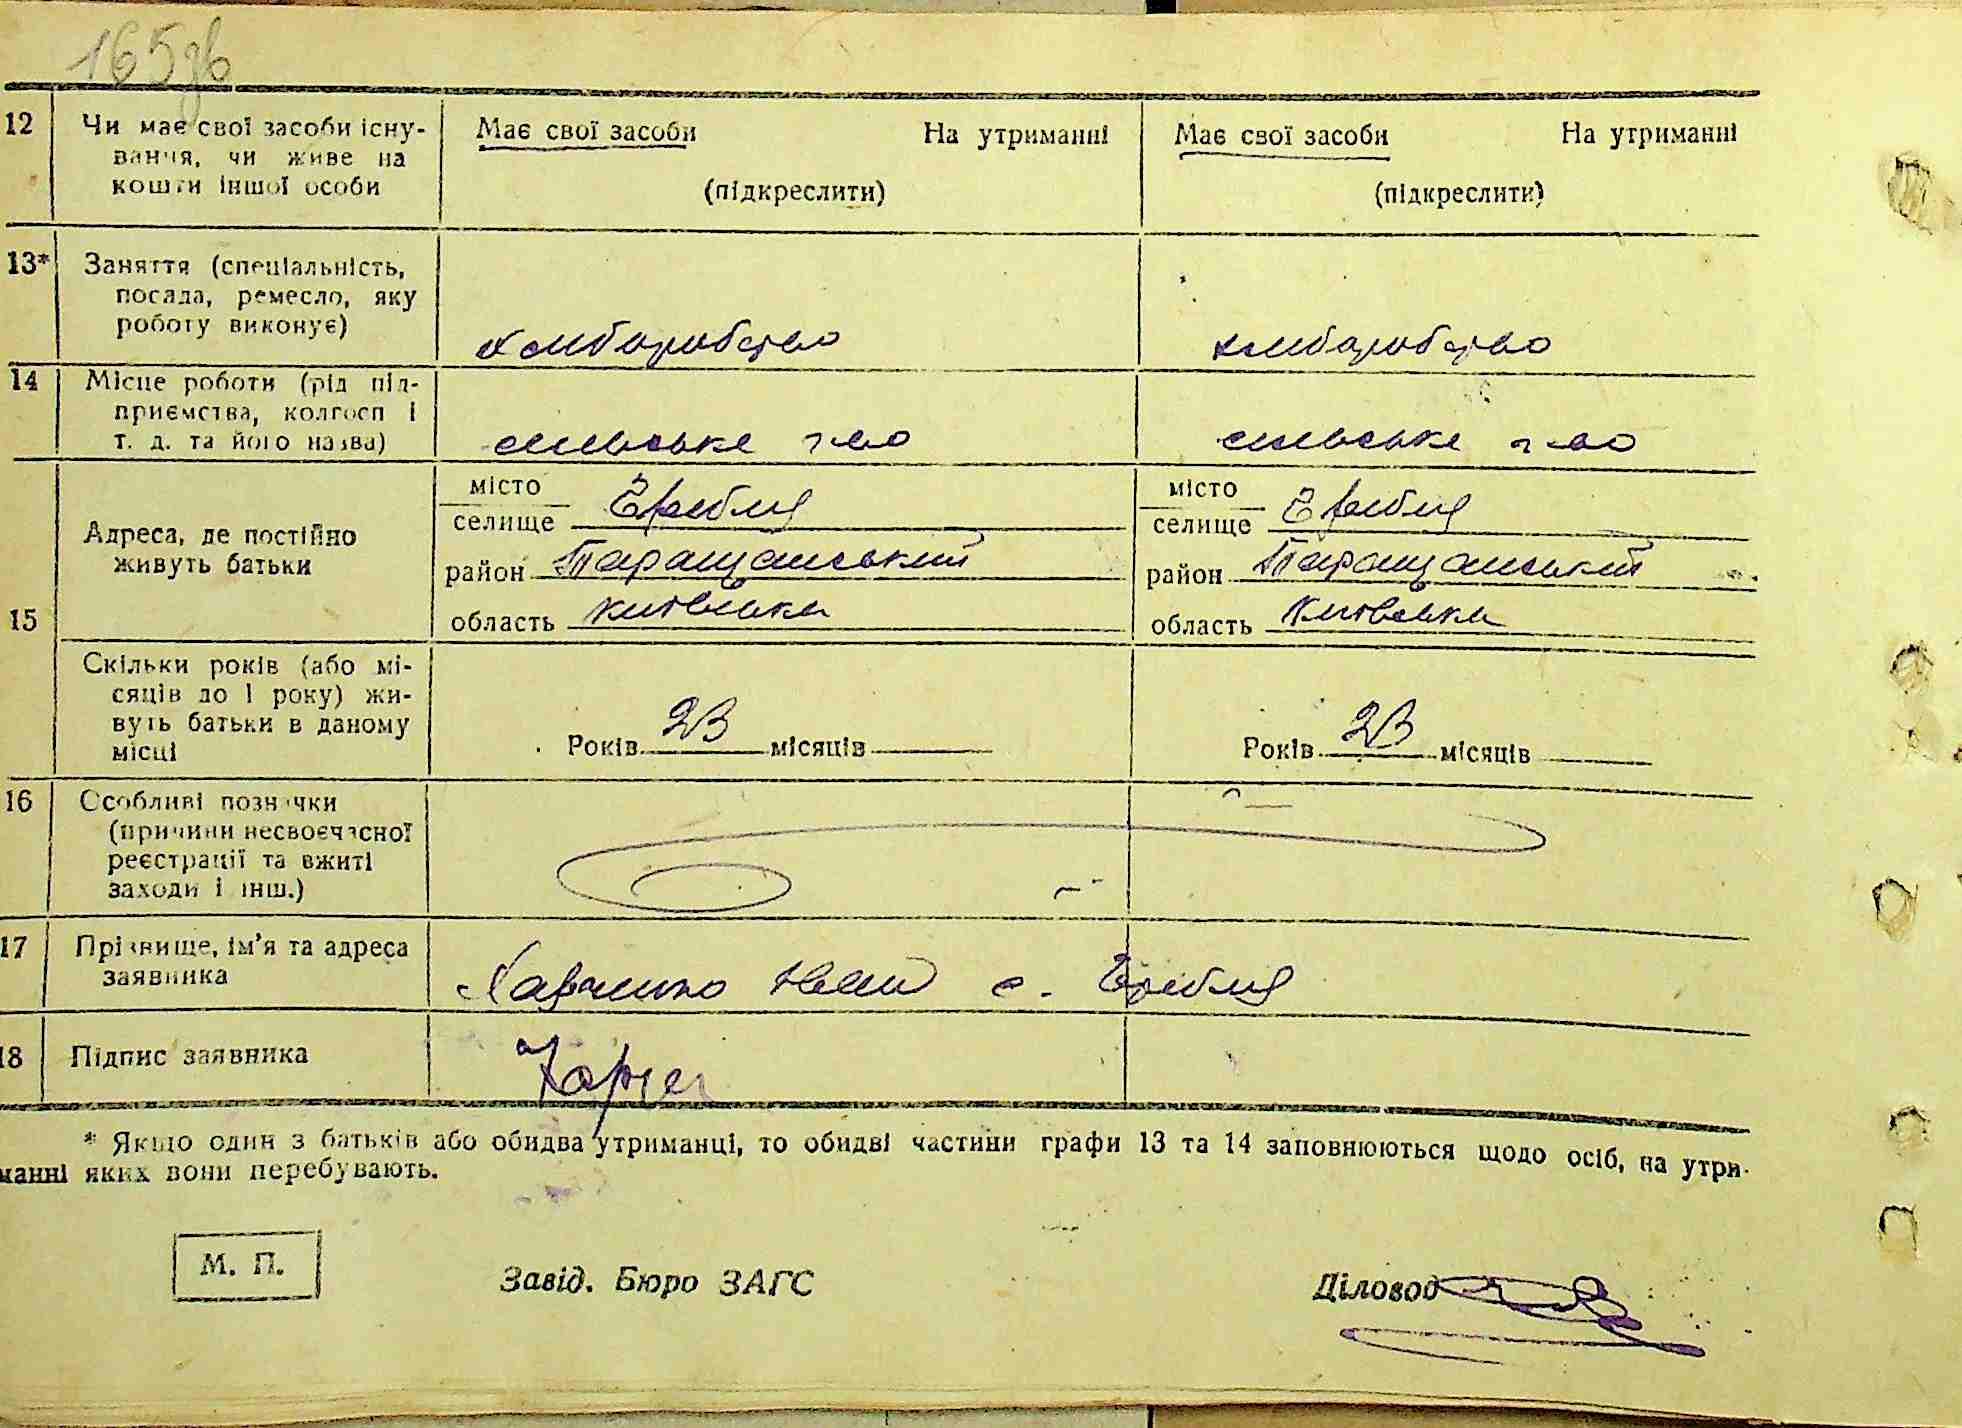 165зв
12 Чи має свої засоби існу- Має свої засоби На утриманні Має свої засоби На утриманні
вання, чи живе на
кошти іншої особи (підкреслити) (підкреслити)
13* Заняття (спеціальність,
посада, ремесло, яку
роботу виконує) хліборобство хліборобство
14 Місце роботи (рід під-
приємства, колгосп і
т. д. та його назва) сільське г-во сільське г-во
місто місто
селище Гребля селище Гребля
Адреса, де постійно
живуть батьки район Таращанський район Таращанський
15 область Київська область Київська
Скільки років (або мі-
сяців до 1 року) жи-
вуть батьки в даному
місці Років 23 місяців Років 23 місяців
16 Особливі позначки
(причини несвоєчасної
реєстрації та вжиті
заходи і інш.)
17 Прізвище, ім'я та адреса
заявника с. Гребля
18 Підпис заявника
* Якщо один з батьків або обидва утриманці, то обидві частини графи 13 та 14 заповнюються щодо осіб, на утри-
манні яких вони перебувають.
М. П. Завід. Бюро ЗАГС Діловод